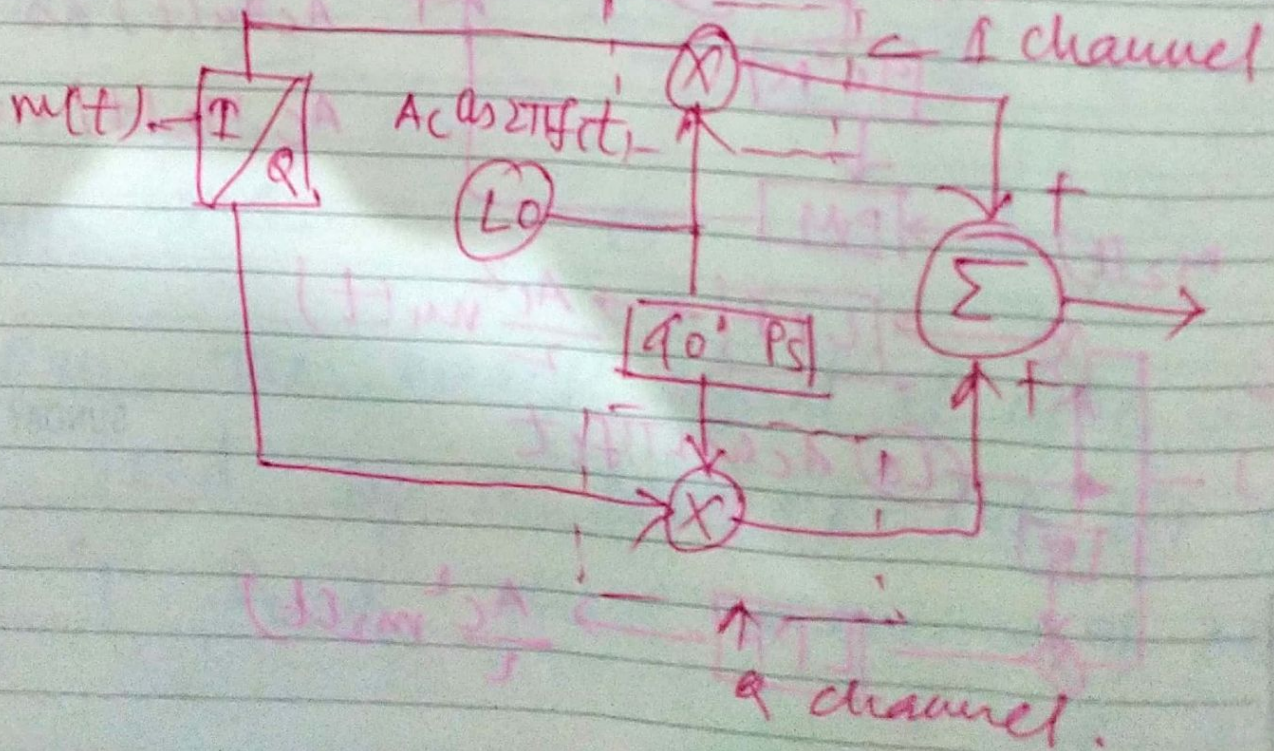 I channel
m(t)
I
Q
X
Ac cos 2πfct
LO
+
Σ
90° PS
+
X
Q channel.